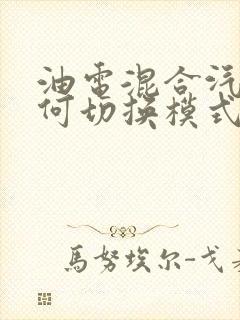 油电混合汽
何切换模式
馬努埃尔-戈